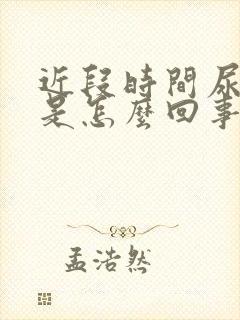 近段時間尿
是怎麼回事
孟浩然